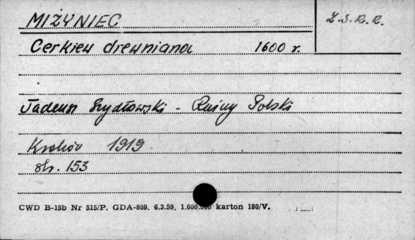 MIŻYNIEC
Z.S.R.R.
Cerkiew drewniana 1600 r.
Tadeusz Szydłowski - Ruiny Polski
Kraków 1919
str. 153
CWD B-15b Nr 515/P. GDA-809. 6.3.59. 1.000.000 karton 180/V.